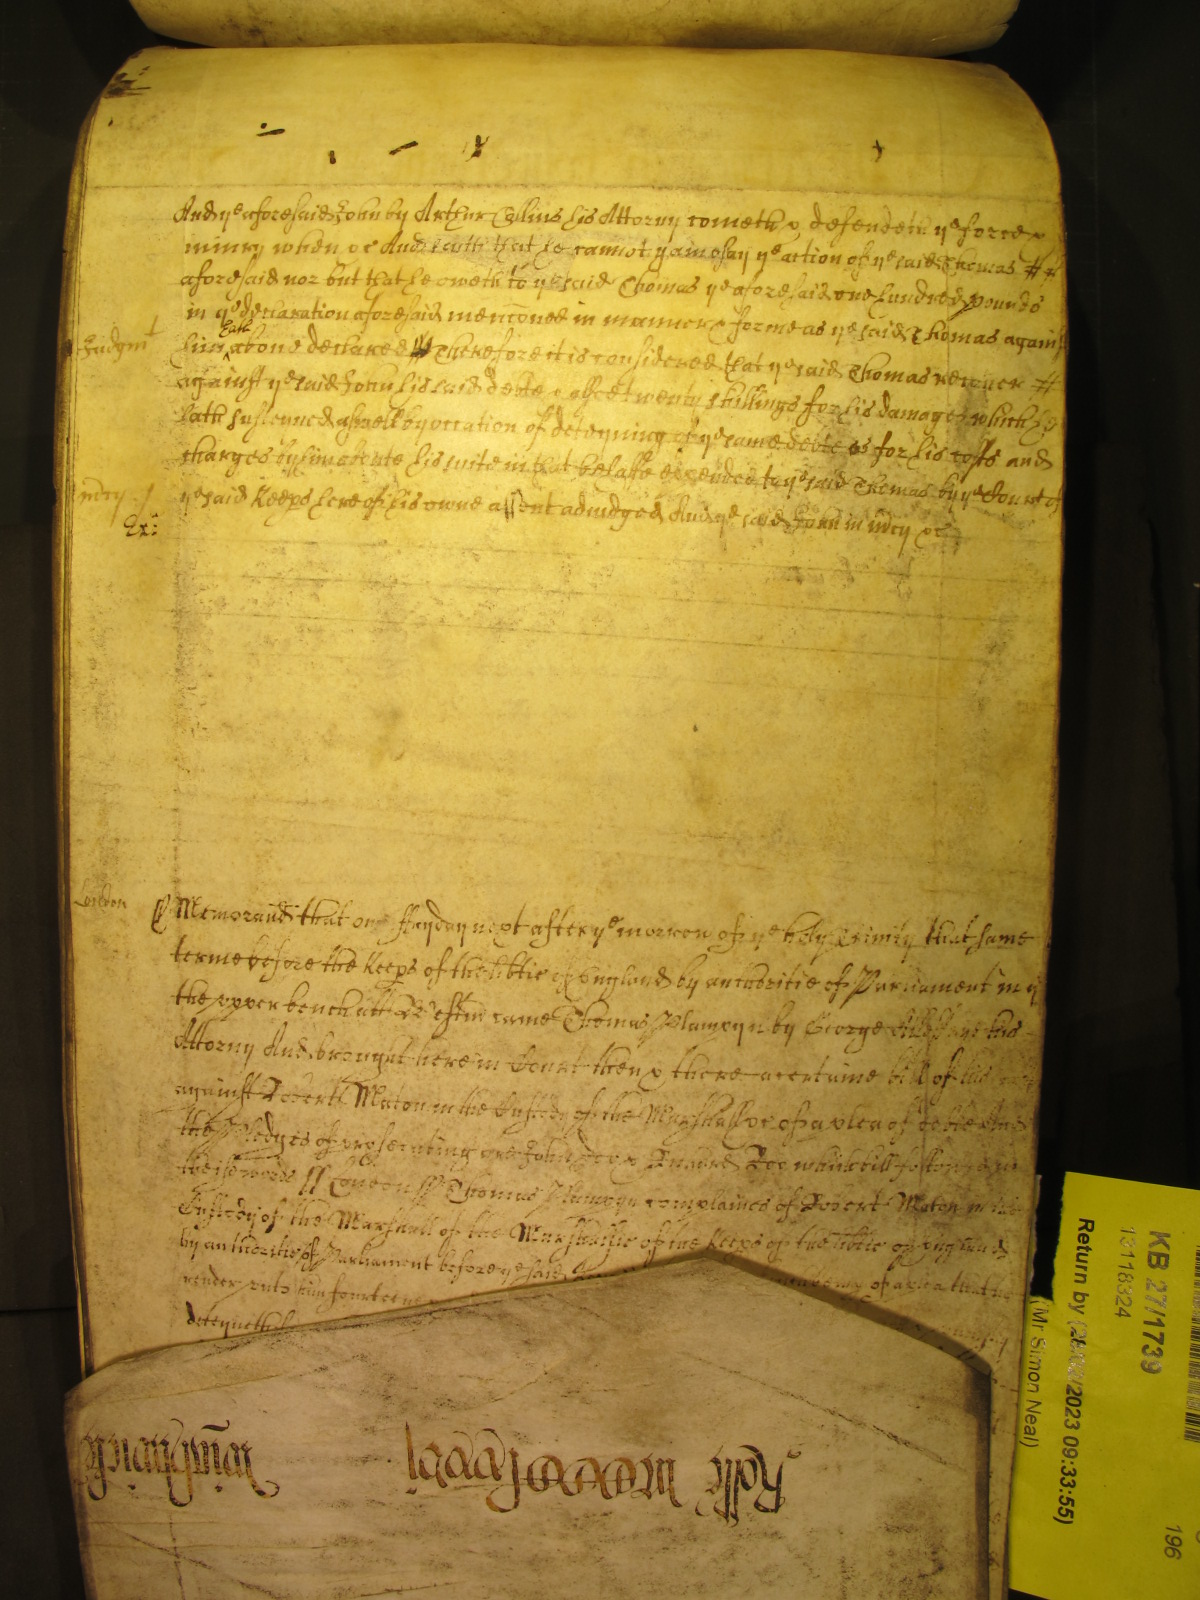 And ye aforesaid John by Arthur Collins his Attorny cometh & defendeth ye force &
iniury when &c And saith that he cannot gainesay ye action of ye said Thomas
aforesaid nor but that he oweth to ye said Thomas ye aforesaid one hundred pounds
in ye declaration aforesaid menconed in manner & forme as ye said Thomas against
Judgmt
him hath above declared Therefore it is considered that ye said Thomas recover
against ye said John his said debte & alsoe twenty shillings for his damages which he
hath susteyned aswell by occation of deteyning of ye same debte as for his costs and
charges by him aboute his suite in that behalfe expended to ye said Thomas by ye Court of
mcy
ye said Keeps here of his owne assent adiudged And ye said John in mcy &c
Ex:
London
Memorand that on ffryday next after ye morrow of ye holy Trinity that same
terme before the Keeps of the libtie of England by authoritie of Parliament in
the upper bench att Westm came Thomas Plampyn by George his
Attorny And brought here in Court then & there a certaine bill of his
against Robert Maton in the Custody of the Marshall &c of a plea of debte And
the Pledges of prosecuting are John Doe & Richard Roe which bill followeth in
theise words ss London ss Thomas Plampyn complaines of Robert Maton in the
Custody of the Marshall of the Marshalsie of the Keeps of the libtie of England
by authoritie of Parliament before ye said of a plea that he
render unto him fourteene
deteyneth
Rolle
KB 27/1739
13118324
Return by (2023 09:33:55)
(Mr Simon Neal)
196